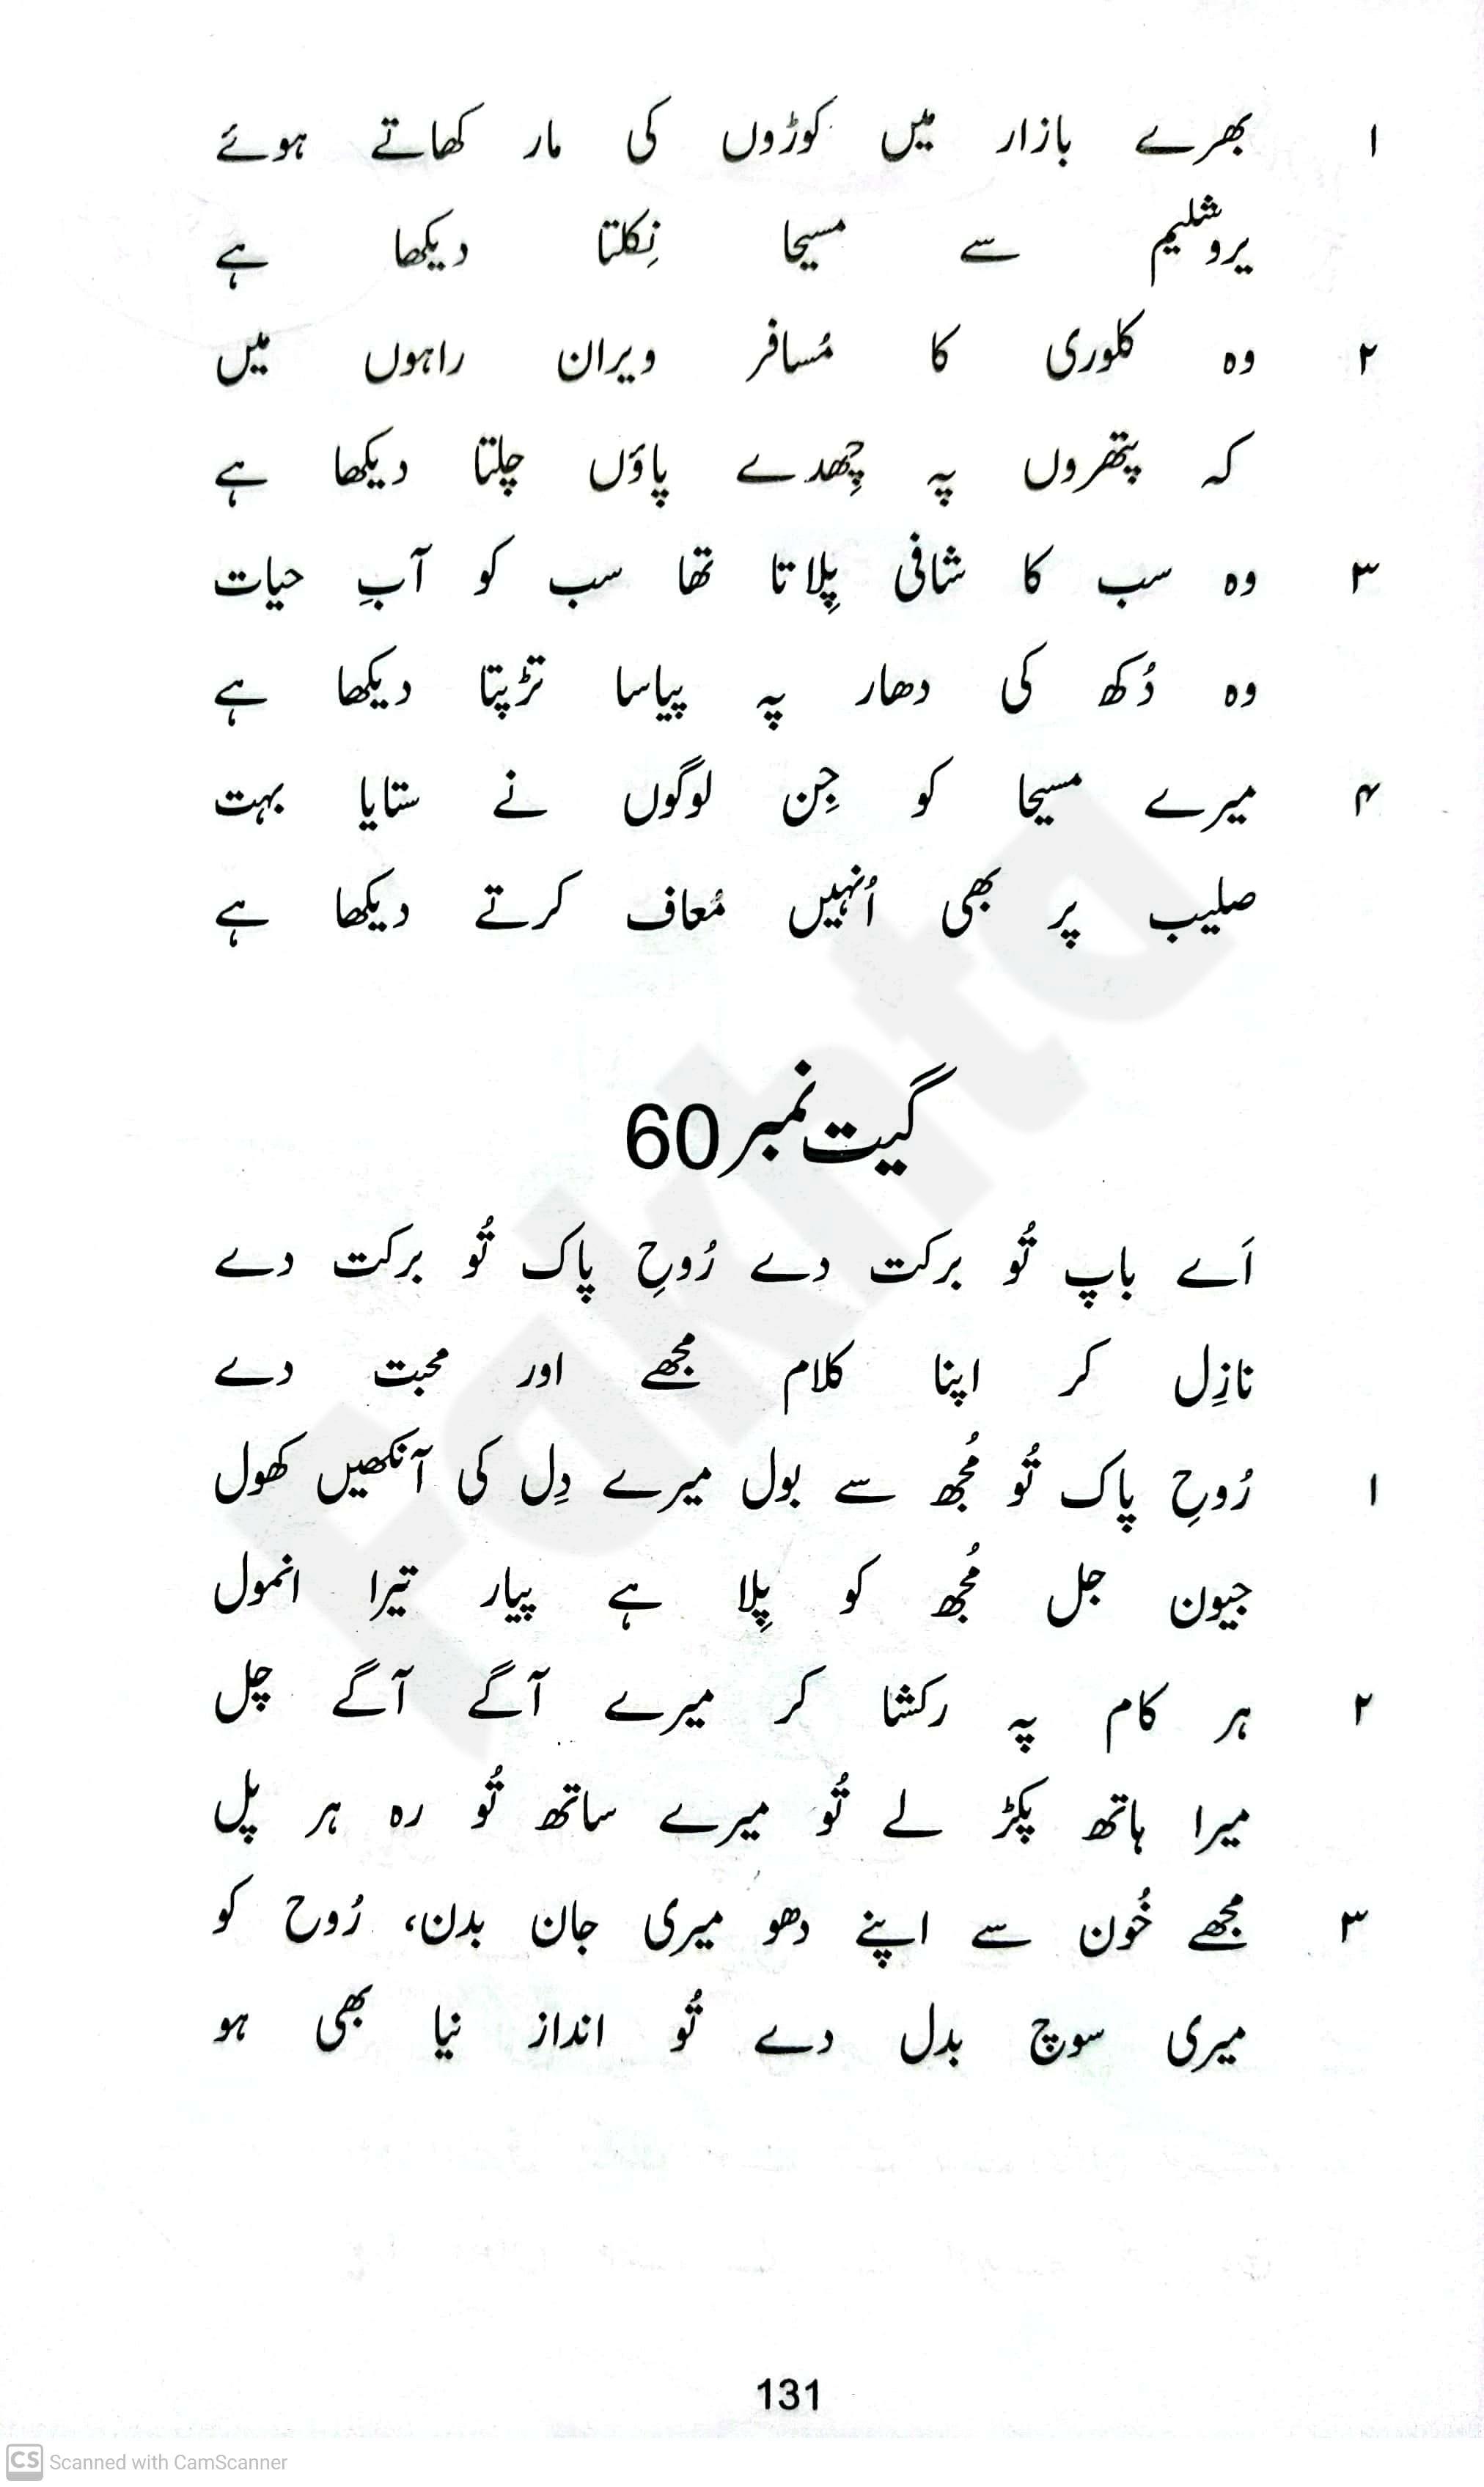 ۱ بھرے بازار میں کوڑوں کی مار کھاتے ہوئے
یروشلیم سے مسیحا نِکلتا دیکھا ہے
۲ وہ کلوری کا مُسافر ویران راہوں میں
کہ پتھروں پہ چِھدے پاؤں چلتا دیکھا ہے
۳ وہ سب کا شافی پِلاتا تھا سب کو آبِ حیات
وہ دُکھ کی دھار پہ پیاسا تڑپتا دیکھا ہے
۴ میرے مسیحا کو جِن لوگوں نے ستایا بہت
صلیب پر بھی اُنہیں مُعاف کرتے دیکھا ہے
گیت نمبر 60
اَے باپ تُو برکت دے رُوحِ پاک تُو برکت دے
نازِل کر اپنا کلام مجھے اور محبت دے
۱ رُوحِ پاک تُو مُجھ سے بول میرے دِل کی آنکھیں کھول
جیون جل مُجھ کو پِلا ہے پیار تیرا انمول
۲ ہر کام پہ رکشا کر میرے آگے آگے چل
میرا ہاتھ پکڑ لے تُو میرے ساتھ تُو رہ ہر پل
۳ مجھے خُون سے اپنے دھو میری جان بدن، رُوح کو
میری سوچ بدل دے تُو انداز نیا بھی ہو
131
Fakhta
CS Scanned with CamScanner